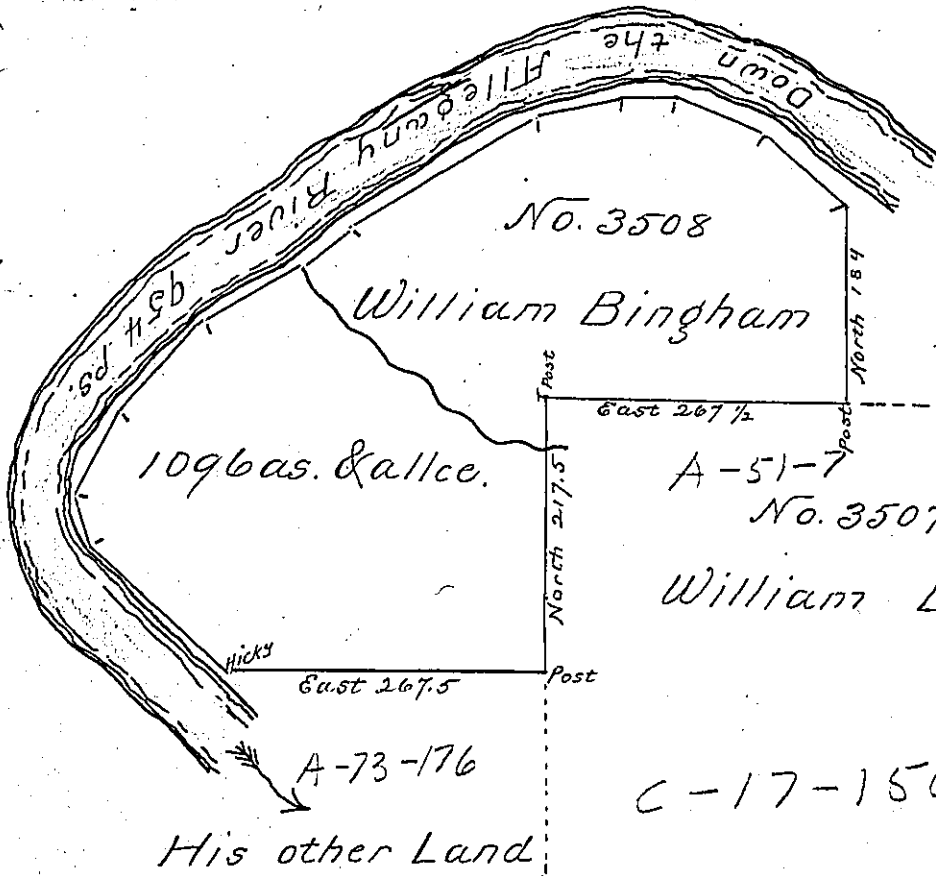 Down the Allegany River 954 ps.
No. 3508
William Bingham
North 184
Post
East 267 1/2
Post
1096as. & allce.
North 217.5
A-51-7
No. 3507
William
Hicky
East 267.5
Post
A-73-176
C-17-15
His other Land